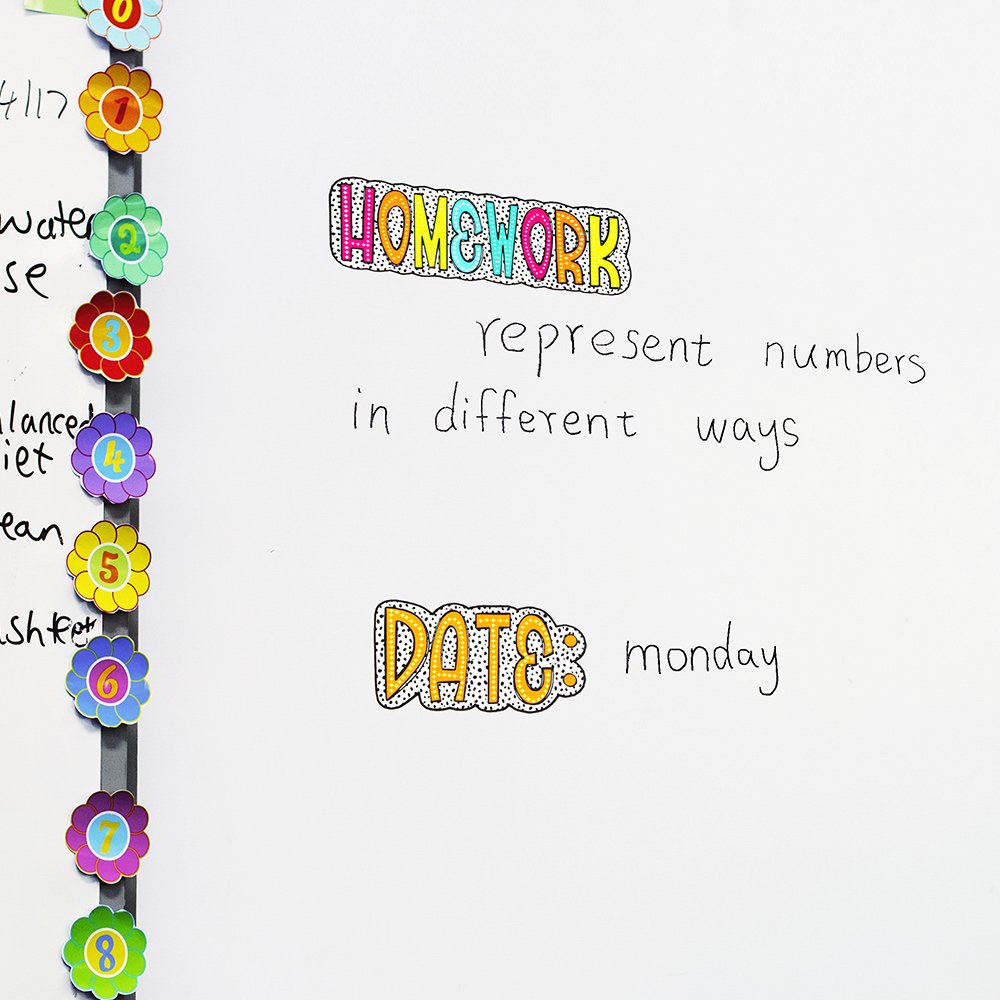 0
1
2
3
4
5
6
7
8
4/17
water
se
lanced
iet
ean
HOMEWORK
represent numbers
in different ways
DATE: monday